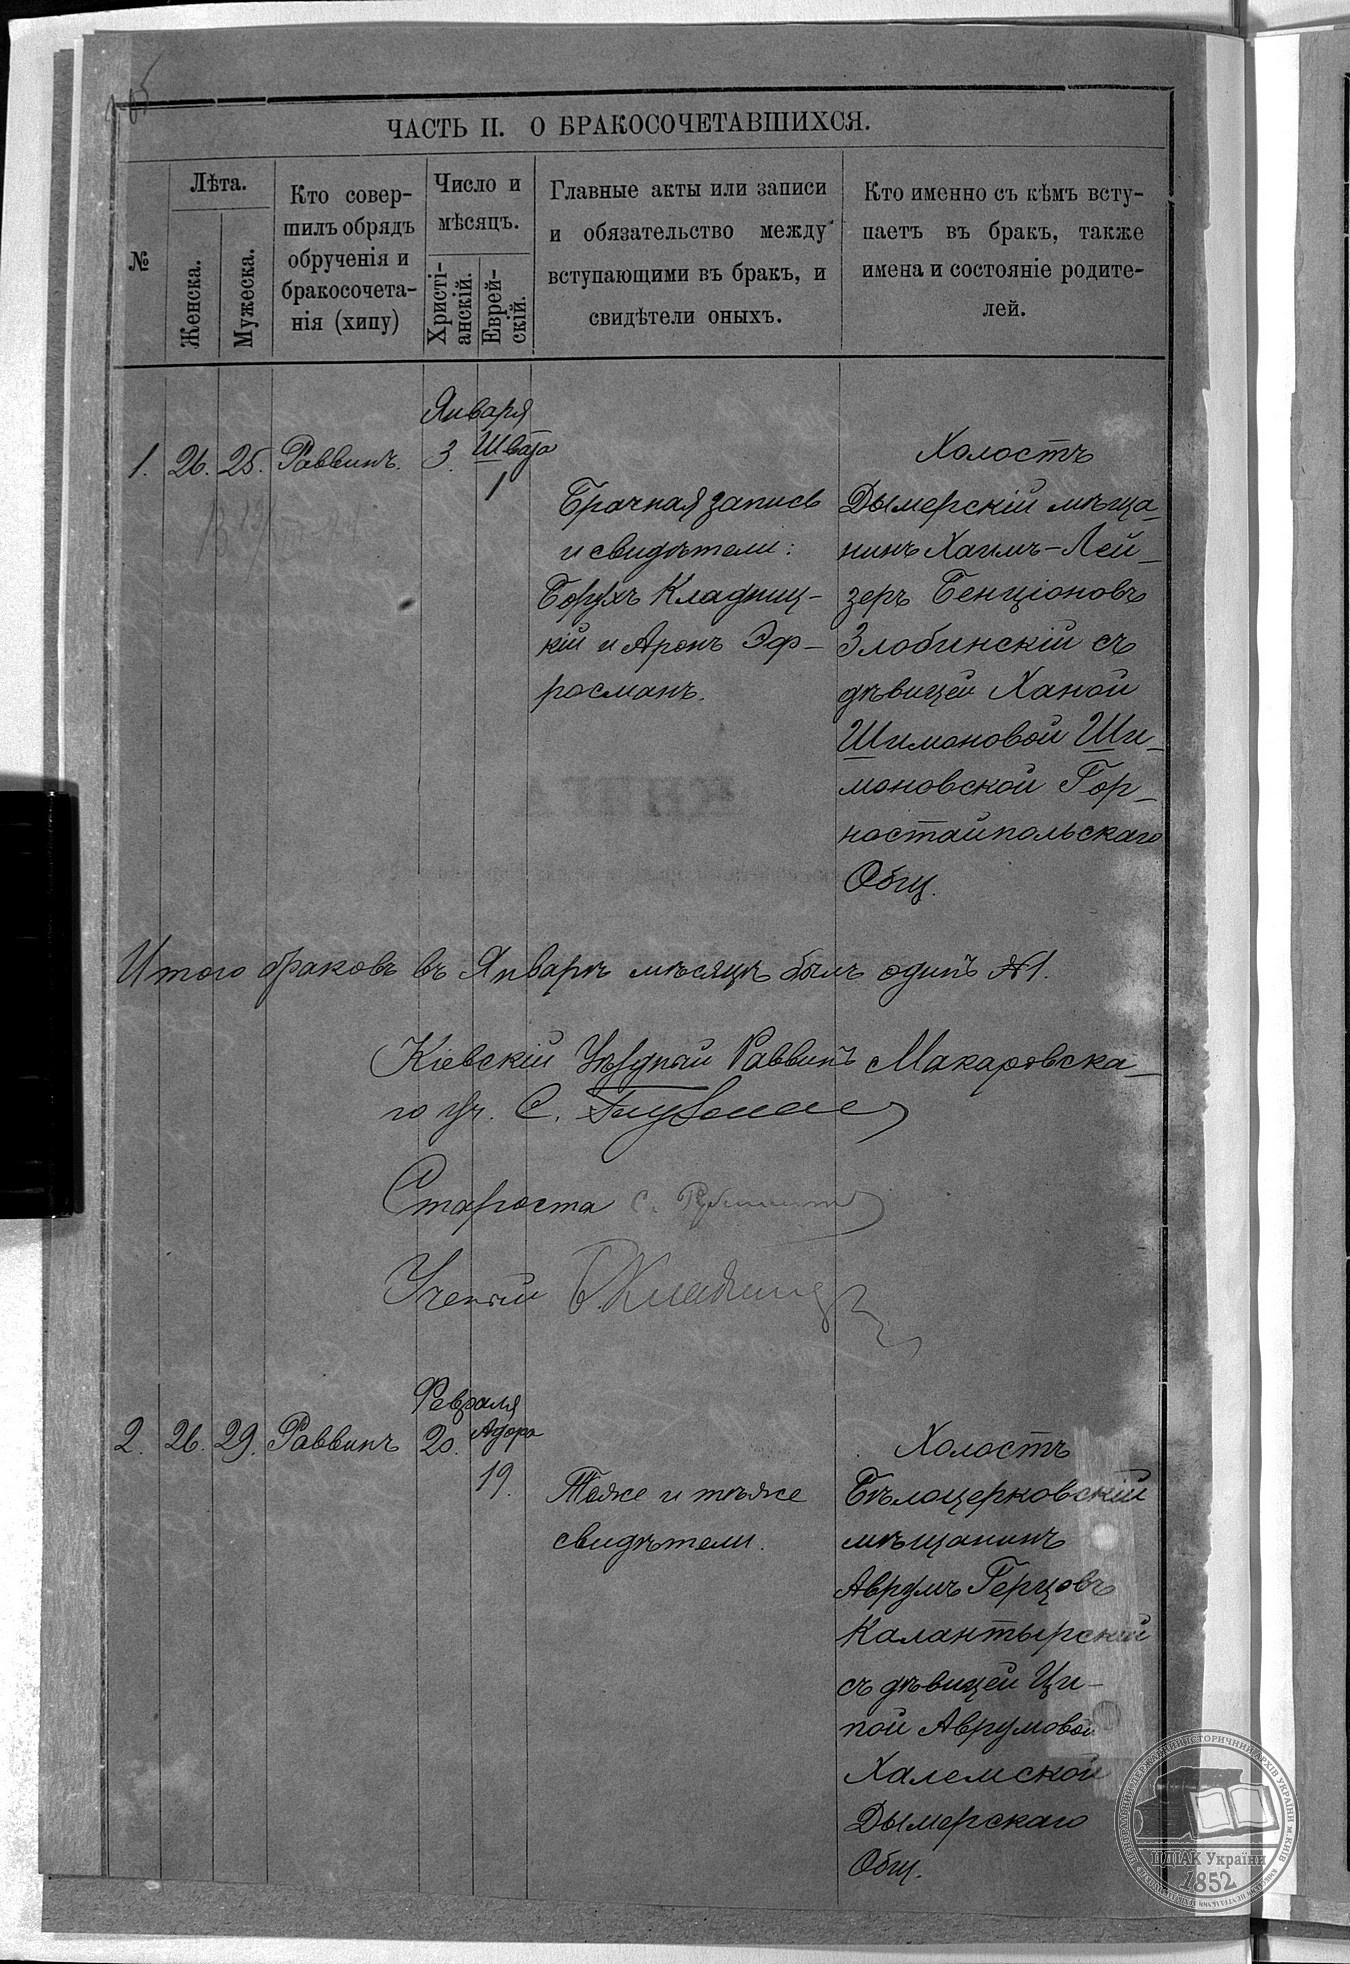 ЧАСТЬ II. О БРАКОСОЧЕТАВШИХСЯ.
№
Лѣта.
Женска.
Мужеска.
Кто совер-
шилъ обрядъ
обрученія и
бракосочета-
нія (хипу)
Число и
мѣсяцъ.
Христі-
анскій.
Еврей-
скій.
Главные акты или записи
и обязательство между
вступающими въ бракъ, и
свидѣтели оныхъ.
Кто именно съ кѣмъ всту-
паетъ въ бракъ, также
имена и состояніе родите-
лей.
Января
1. 26. 25. Раввинъ. 3. Швата
1
Брачная запись
и свидѣтели:
Борухъ Кладниц-
кій и Аронъ Эф-
росманъ.
Холостъ
Дымерскій мѣща-
нинъ Хаимъ-Лей-
зеръ Бенціоновъ
Злобинскій съ
дѣвицей Ханой
Шимоновой Ши-
моновской Гор-
ностайпольскаго
Общ.
Итого браковъ въ Январѣ мѣсяцѣ былъ одинъ №1.
Кіевскій Уѣздный Раввинъ Макаровска-
го уч. С.
Староста С.
Ученый Б. Кладниц
Февраля
2. 26. 29. Раввинъ 20. Адара
19.
Тоже и тѣже
свидѣтели.
Холостъ
Бѣлоцерковскій
мѣщанинъ
Аврумъ Герцовъ
Калантырскій
съ дѣвицей Ци-
пой Аврумовой
Халемской
Дымерскаго
Общ.
ЦДІАК України
1852